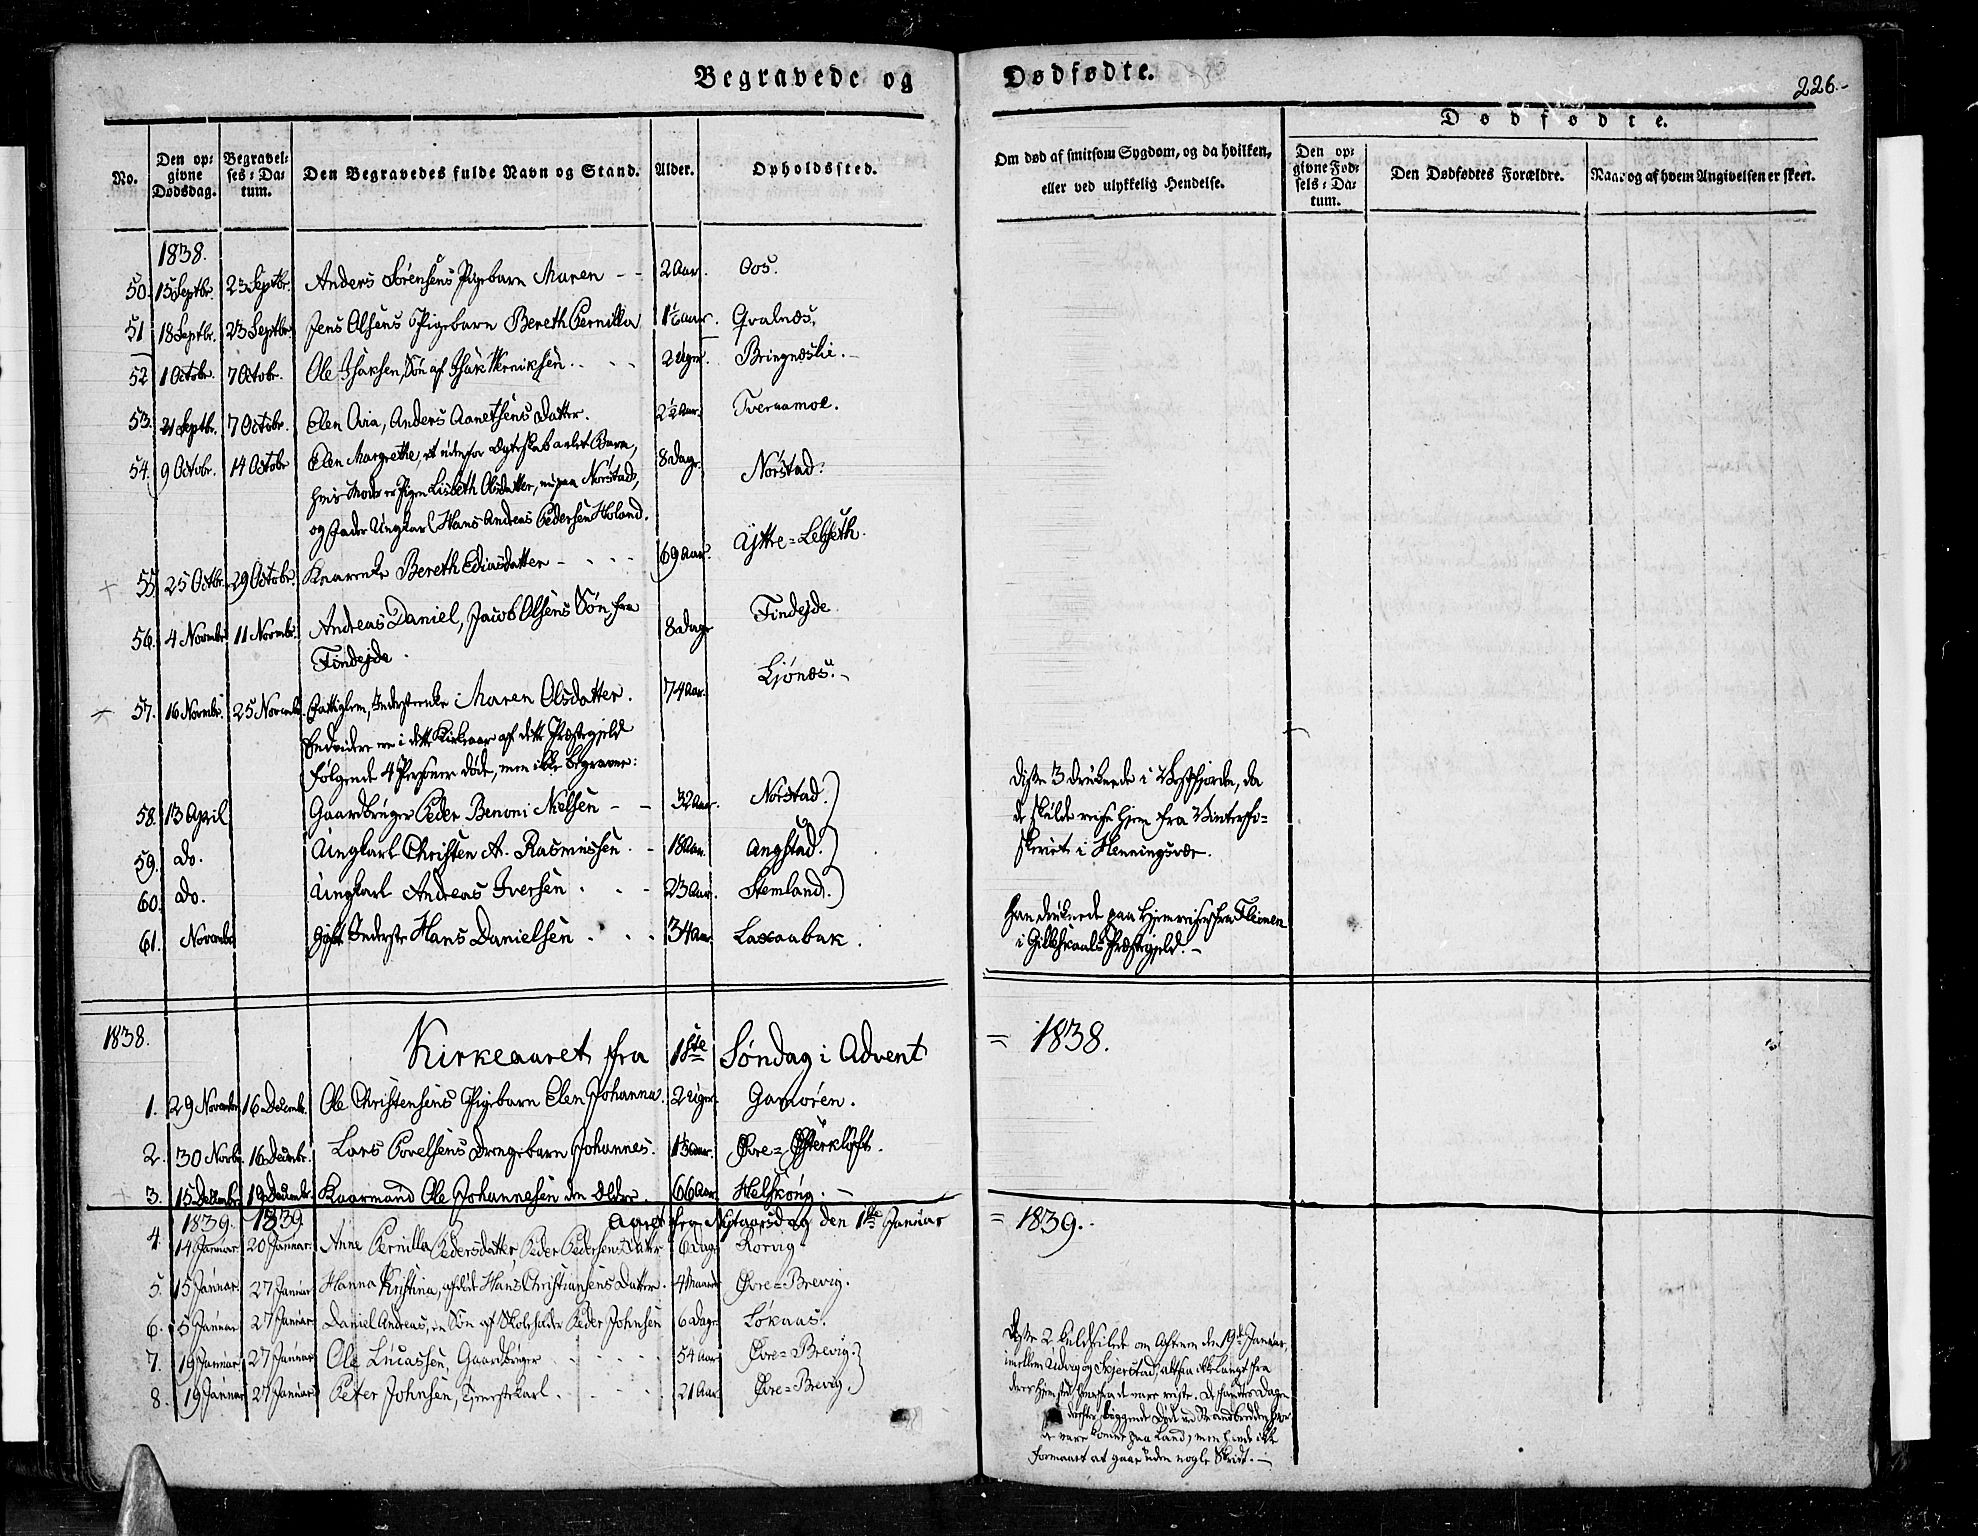 Begravede og Dødfødte.
226.
No. Den opgivne Dødsdag. Begravelses-Datum. Den Begravedes fulde Navn og Stand. Alder. Opholdssted. Om død af smitsom Sygdom, og da hvilken, eller ved ulykkelig Hendelse.
Dødfødte.
Den opgivne Fødsels-Datum. Den Dødfødtes Forældre. Naar og af hvem Angivelsen er skeet.
1838.
50. 15 Septbr. 23 Septbr. Anders Sørensens Pigebarn Maren 2 Aar. Oos.
51 18 Septbr. 23 Septbr Jens Olsens Pigebarn Bereth Pernilla 1½ Aar. Qvalnæs.
52 1 Octobr. 7 Octobr. Ole Isaksen, Søn af Isak Henriksen. 2 Uger. Bringnæslie.
53. 21 Septbr. 7 Octobr. Elen Avia, Anders Aanetsens Datter. 2½ Aar. Tveraamoe.
54. 9 Octobr. 14 Octobr Elen Margrethe, et udenfor Ægteskab avlet Barn, 8 Dage. Norstad.
hvis Moder er Pigen Lisbeth Olsdatter, nu paa Norstad,
og Fader Ungkarl Hans Andreas Pedersen Holand.
55. 25 Octbr. 29 Octobr. Kaarenke Bereth Ediasdatter 69 Aar. Yttre=Lebseth.
56. 4 Novembr 11 Novembr. Andreas Daniel, Jacob Olsens Søn fra 8 Dage Findejde
Findejde.
57. 16 Novembr. 25 Novembr. Fattiglem, Inderstenke Maren Olsdatter. 74 Aar. Ljønæs.
Endvidere ere i dette Kirkeaar af dette Præstegjeld
følgende 4 Personer døde, men ikke begravne:
58. 13 April Gaardbruger Peder Benoni Nielsen 32 Aar. Norstad.
59. do. Ungkarl Christen A. Rasmussen. 18 Aar. Angstad.
60. do. Ungkarl Andreas Iversen 23 Aar. Stemland.
61. Novembr Gift Inderste Hans Danielsen 34 Aar. Laxaabak.
Disse 3 druknede i Vestfjorden, da
de skulde reise hjem fra Vinterfi=
skeriet i Henningsvær.
Han druknede paa Hjemreisen fra Fleinen
i Gilleskaals Præstegjeld.
1838. Kirkeaaret fra 1ste Søndag i Advent = 1838.
1. 29 Novembr 16 Decembr. Ole Christensens Pigebarn Elen Johanna. 2 Uger. Gamøren.
2. 30 Novbr. 16 Decembr. Lars Povelsens Drengebarn Johannes. Øvre= Østerkløft.
3. 15 Decembr 19 Decembr. Kaarmand Ole Johannesen den Ældre. 66 Aar. Helskong.
1839. 1839. Aaret fra Nytaarsdag den 1ste Januar = 1839.
4. 14 Januar 20 Januar. Anne Pernilla Pedersdatter Peder Pedersens Datter 6 Dage Rørvig
5. 15 Januar 27 Januar Hanna Kristina, afdøde Hans Christiansens Datter. 4 Maaned Øvre=Brevig.
6. 5 Januar 27 Januar Daniel Andreas, en Søn af Skoleholder Peder Johnsen 6 Dage Løkaas.
7. 19 Januar 27 Januar Ole Lucassen, Gaardbruger 54 Aar Øvre=Brevig.
8. 19 Januar 27 Januar Peter Johnsen, Tjenestekarl. 21 Aar. Øvre=Brevig.
Disse 2 kuldfrøs om Aftenen den 19de Januar,
imellem og Skjerstad, altsaa ikke langt fra
deres Hjemsted, hvorfra de vare reiste. De fandtes Dagen
derefter, liggende Død ved Strandbredden, hvor
de vare komne paa Land, men havde ikke
formaaet at gaae uden nogle Skridt.